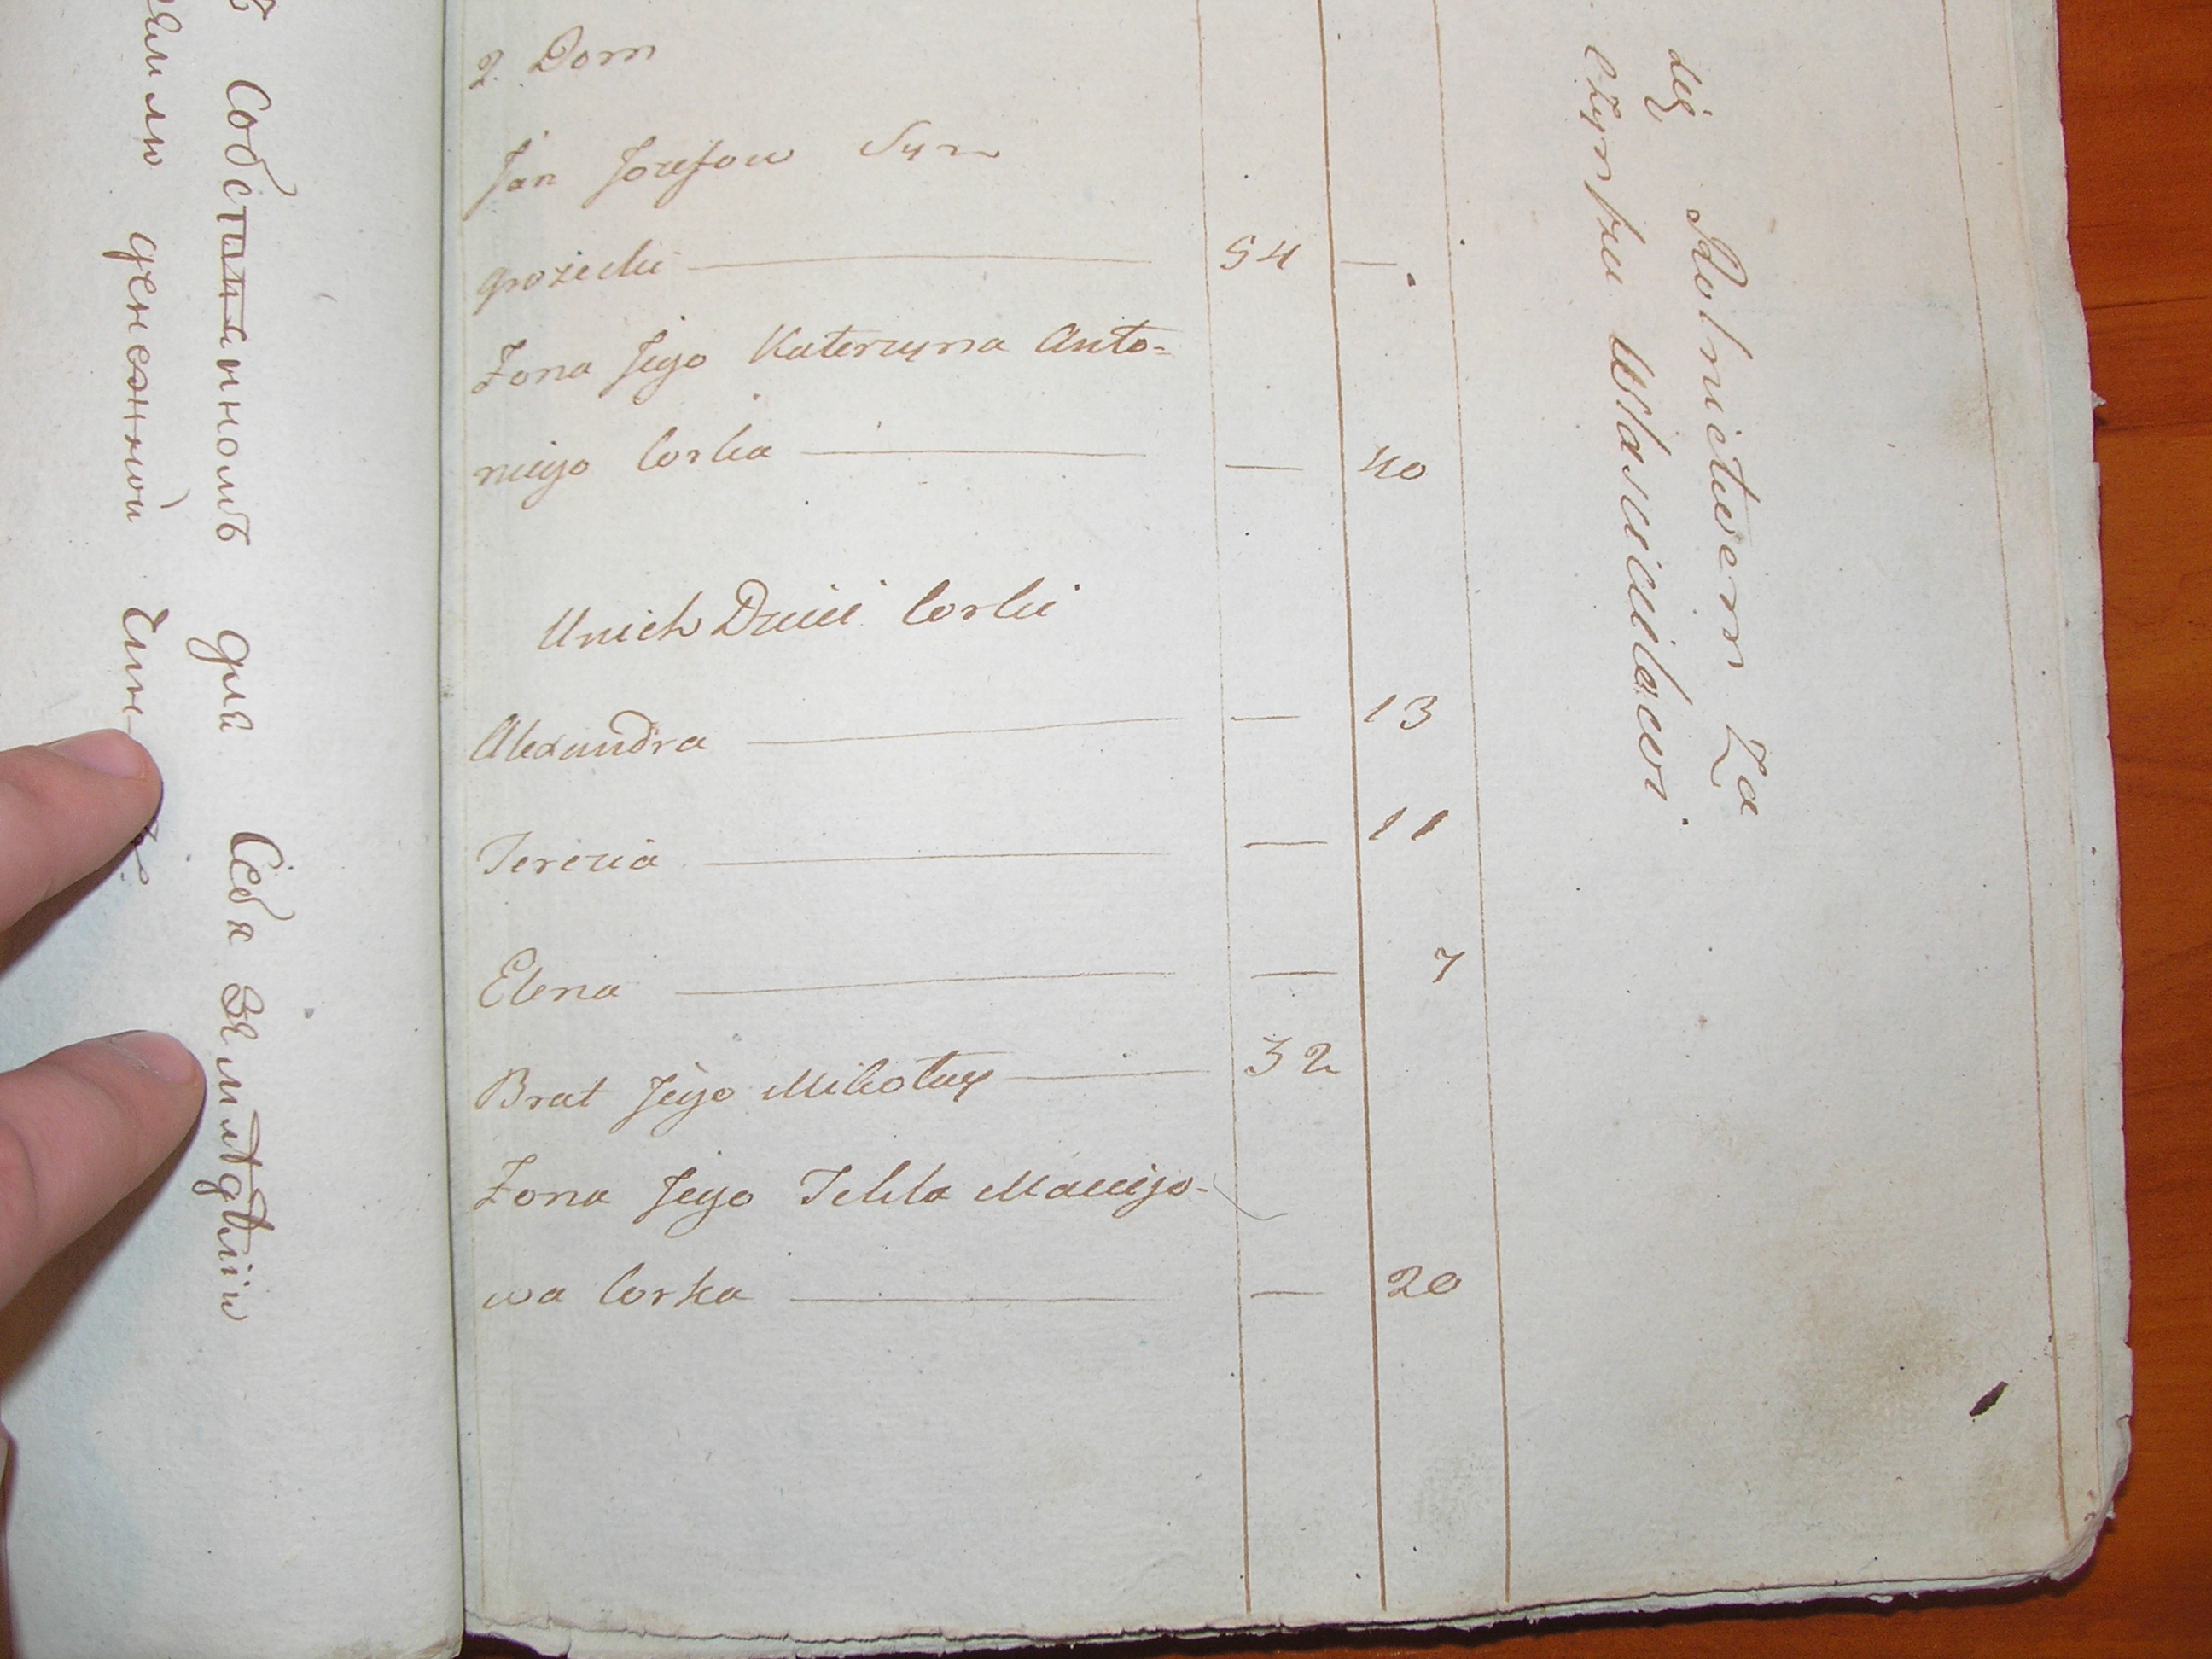 Собственномъ для Себя Земледѣлiи
землю денежной Чинш
2 Dom
Jan Jozefow Syn
Grozecki 54 —
Zona Jego Katerzyna Anto-
niego Corka — 40
Unich Dzieci Corki
Alexandra — 13
Terezia — 11
Elena — 7
Brat Jego Mikołay 32
Zona Jego Tekla Maciejo-
wa Corka — 20
dię Rolnictwem Za
Czynszu Własścicielowi.